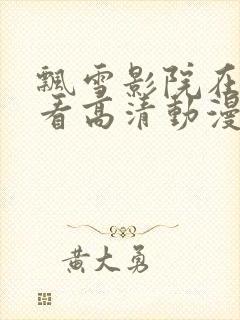 飘雪影院在
看高清動漫
黄大勇